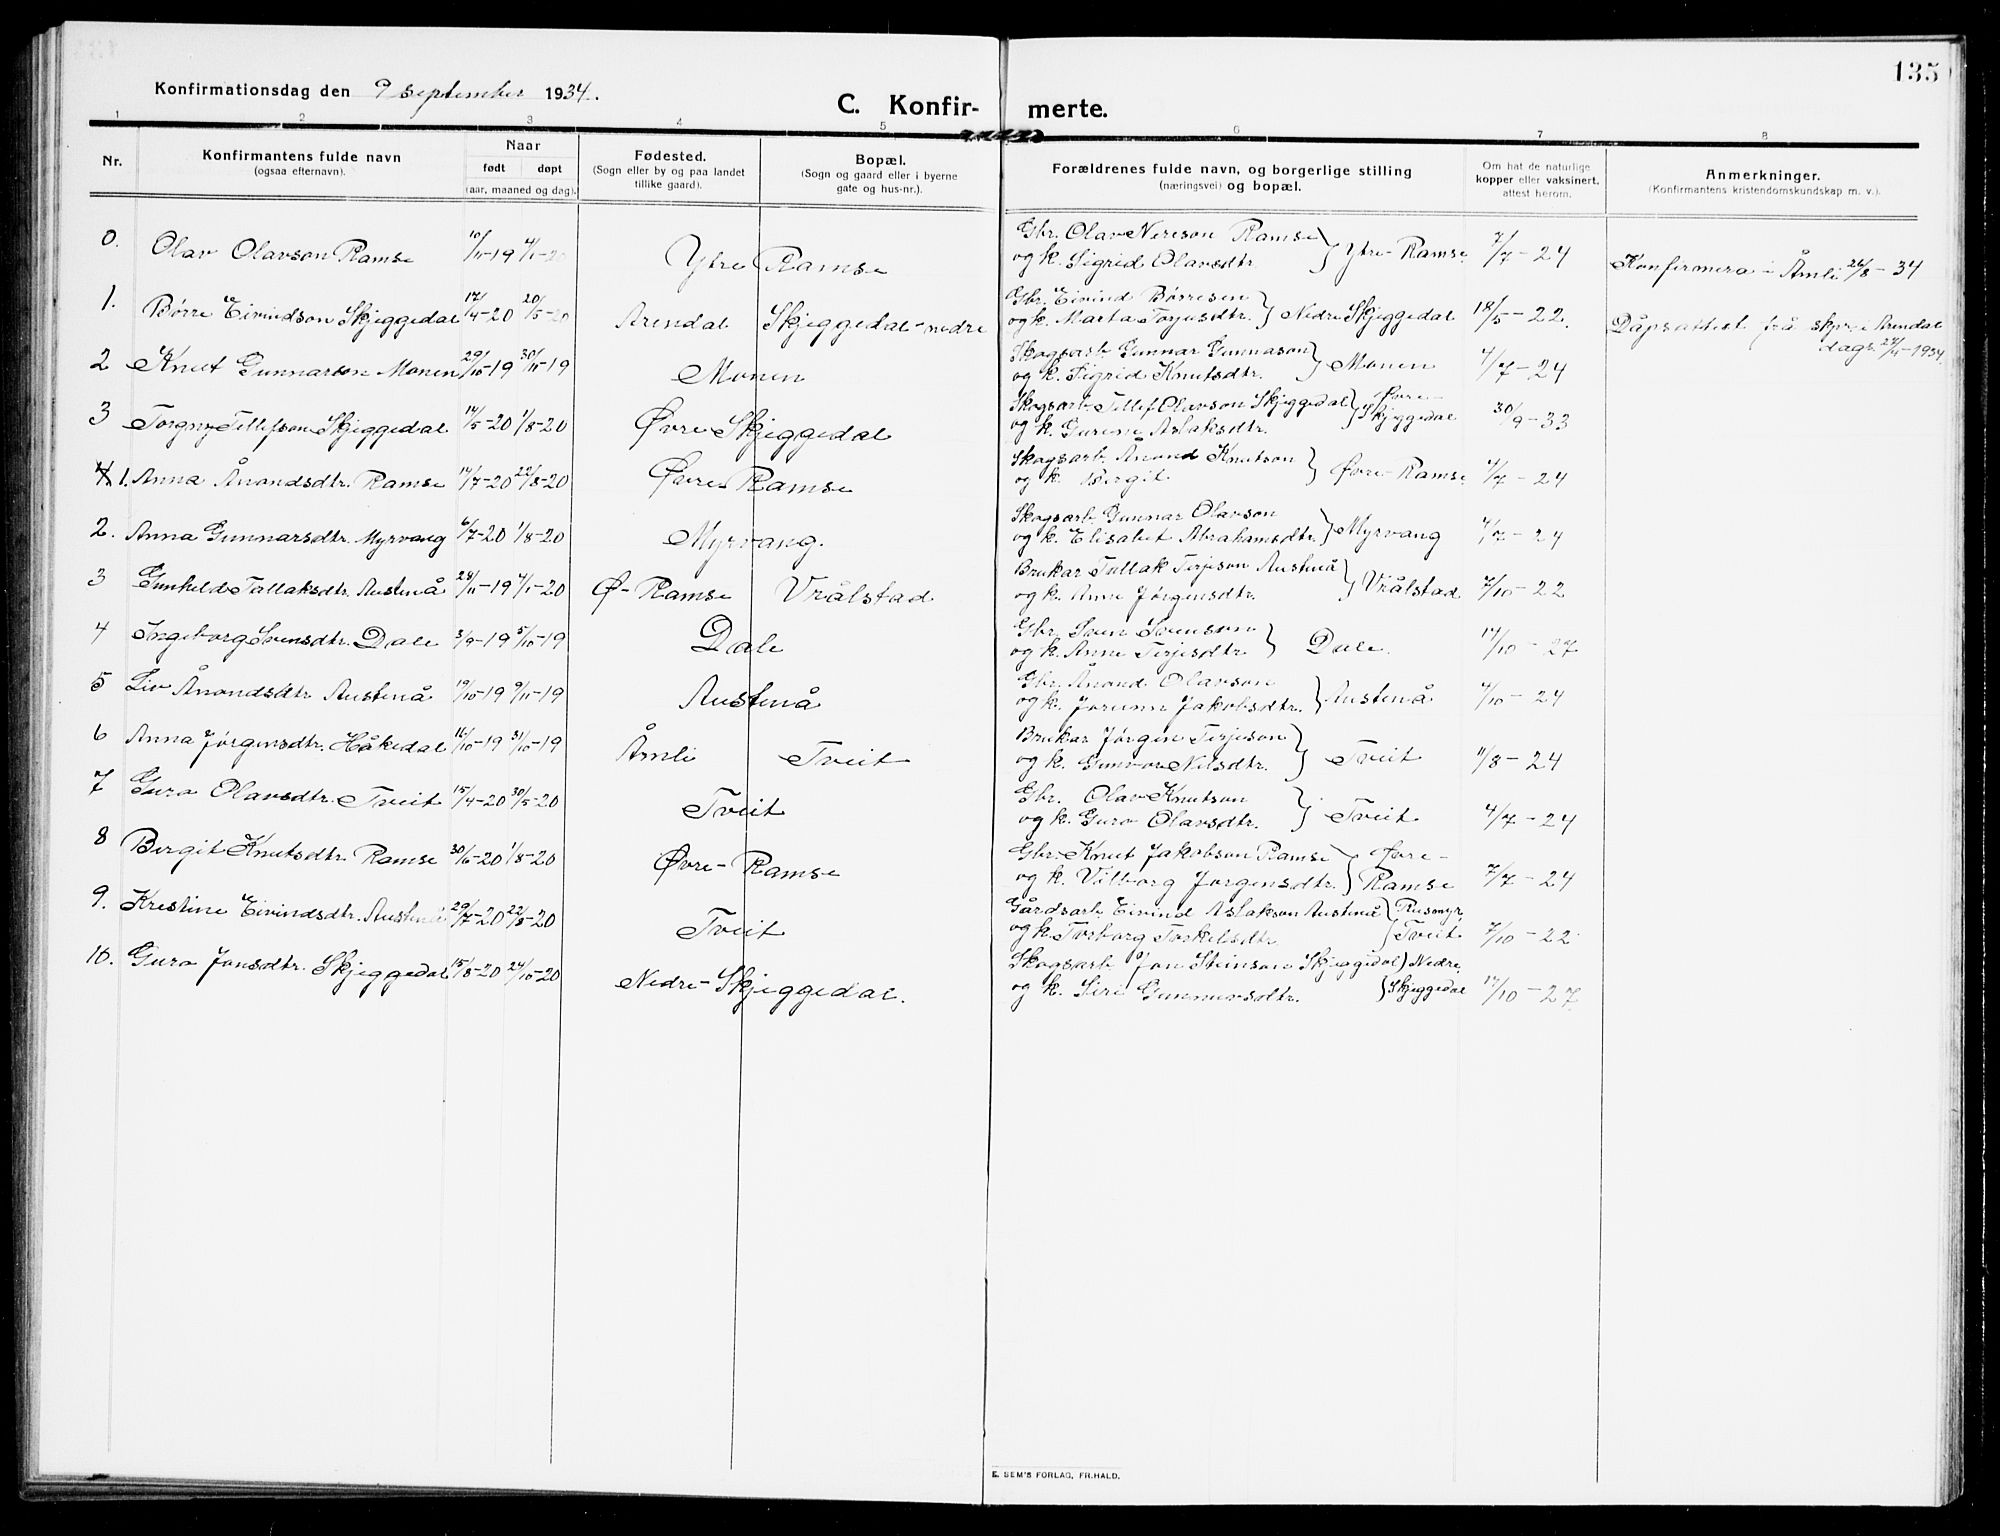 135
Konfirmationsdag den 9 september 1934.
C. Konfir- merte.
1 2 3 4 5 6 7 8
Nr.
Konfirmantens fulde navn
(ogsaa efternavn).
Naar
født døpt
(aar, maaned og dag).
Fødested.
(Sogn eller by og paa landet
tillike gaard).
Bopæl.
(Sogn og gaard eller i byerne
gate og hus-nr.).
Forældrenes fulde navn, og borgerlige stilling
(næringsvei) og bopæl.
Om hat de naturlige
kopper eller vaksinert,
attest herom.
Anmerkninger.
(Konfirmantens kristendomskundskap m. v.).
0. Olav Olavson Ramse 10/11-19 4/1-20 Ytre Ramse Gbr. Olav Nereson Ramse
og k. Sigrid Olavsdtr. } Ytre-Ramse 7/7-24 Konfirmera i Åmli 26/8-34
1. Børre Eivindson Skjeggedal 17/4-20 20/5-20 Arendal Skjeggedal-nedre Gbr. Eivind Børresen
og k. Marta Torjusdtr. } Nedre Skjeggedal 18/5-22. Dåpsattest frå skpr. i Arendal
dags. 24/11-1934.
2 Knut Gunnarson Monen 29/10-19 30/11-19 Monen Skogsarb. Gunnar Gunnason
og k. Sigrid Knutsdtr. } Monen 4/7-24
3 Torgny Tellefson Skjeggedal 14/5-20 1/8-20 Øvre Skjeggedal Skogsarb. Tellef Olavson Skjeggedal } Øvre-
og k. Gurine Aslaksdtr. Skjeggedal 30/9-33
4 1. Anna Ånondsdtr. Ramse 14/7-20 22/8-20 Øvre Ramse Skogsarb. Ånond Knutson
og k. Bergit } Øvre-Ramse 4/7-24
2. Anna Gunnarsdtr. Myrvang 6/7-20 1/8-20 Myrvang. Skogsarb. Gunnar Olavson
og k. Elisabet Abrahamsdtr. } Myrvang 4/7-24
3 Gunhild Tallaksdtr. Austenå 28/11-19 4/1-20 Ø-Ramse Vrålstad Brukar Tallak Terjeson Austenå
og k. Anne Jørgensdtr. } Vrålstad 7/10-22
4 Ingeborg Svensdtr. Dale 3/9-19 5/10-19 Dale Gbr. Sven Svenson
og k. Anne Terjesdtr. } Dale. 17/10-27
5 Liv Ånondsdtr Austenå 19/10-19 9/11-19 Austenå Gbr. Ånond Olavson
og k. Jorunn Jakobsdtr. } Austenå 4/10-24
6 Anna Jørgensdtr. Håkedal 16/10-19 31/10-19 Åmli Tveit Brukar Jørgen Terjeson
og k. Gunvor Nilsdtr. } Tveit 11/8-24
7 Guro Olavsdtr. Tveit 15/4-20 30/5-20 Tveit Gbr. Olav Knutson
og k. Guro Olavsdtr. } Tveit 4/7-24
8 Bergit Knutsdtr. Ramse 30/6-20 1/8-20 Øvre-Ramse Gbr. Knut Jakobson Ramse } Øvre-
og k. Vilborg Jørgensdtr. Ramse 7/7-24
9. Kristine Eivindsdtr. Austenå 29/7-20 22/8-20 Tveit Gårdsarb. Eivind Aslakson Austenå } Rusmyr,
og k. Torborg Torkelsdtr. Tveit 7/10-22
10. Guro Jonsdtr. Skjeggedal 15/8-20 24/10-20 Nedre-Skjeggedal. Skogsarb. Jon Steinson Skjeggedal } Nedre
og k. Siri Gunnarsdtr. Skjeggedal 17/10-27
E. SEM'S FORLAG, FR.HALD.